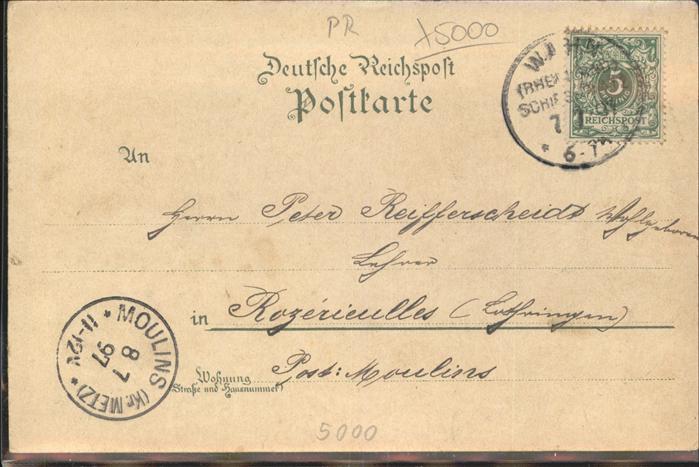 PR
15000
Deutsche Reichspost
Postkarte
WAHN
SCHIE
7 7
* 6-7N
5
REICHSPOST
An
Herrn Peter Reifferscheidt Wohlgeboren
Lehrer
in Rozérieulles (Lothringen)
Post: Moulins
Wohnung
(Straße und Hausnummer)
* MOULINS (Kr. METZ) * 11-12V
8 7
97
5000